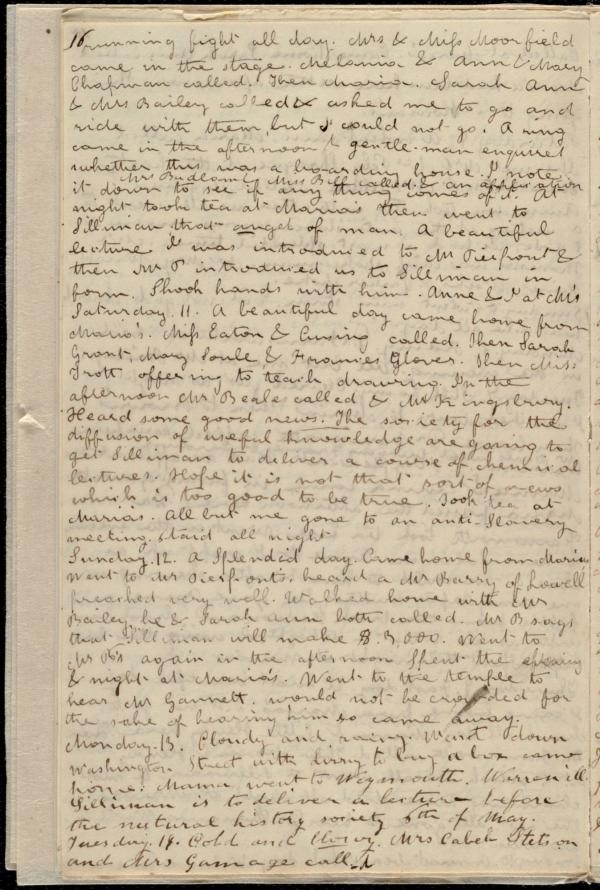 16
running fight all day. Mrs & Miss Moorfield
came in the stage. Melania & Ann & Mary
Chapman called. Then Maria. Sarah Ann
& Mrs Bailey called & asked me to go and
ride with them but I could not go. A ring
came in the afternoon & gentle-man enquired
whether this was a boarding house. I note
Mrs Budlong & Miss Bill called. & an application
it down to see if any thing comes of it. At
night took tea at Maria's then went to
Silliman that angel of man. A beautiful
lecture I was introduced to Mr Pierpont &
then Mr P introduced us to Silliman in
form. Shook hands with him. Anne & I at M's
Saturday. 11. A beautiful day came home from
Maria's. Miss Eaton & Cusing called. Then Sarah
Grant, Mary Soule & Frances Glover. Then Miss
Trott offering to teach drawing. In the
afternoon Mr Beale called & Mr Kingsbury.
Heard some good news. The society for the
diffusion of useful knowledge are going to
get Silliman to deliver a course of chemical
lectures. Hope it is not that sort of news
which is too good to be true. Took tea at
Maria's. All but me gone to an anti-Slavery
meeting. Staid all night
Sunday. 12. A Splendid day. Came home from Marias
Went to Mr Pierponts. heard a Mr Barry of Lowell
preached very well. Walked home with Mr
Bailey, he & Sarah ann both called. Mr B says
that Silliman will make $.3,000. Went to
Mr P's again in the afternoon Spent the evening
& night at Maria's. Went to the temple to
hear Mr Gannett. would not be crowded for
the sake of hearing him so came away.
Monday. 13. Cloudy and rainy. Went down
Washington Street with dirry to buy a box came
home. Mama went to Weymouth. Warren ill
Silliman is to deliver a lecture before
the natural history society 6th of May.
Tuesday. 14. Cold and Mrs Caleb Stetson
and Mrs Gamage called